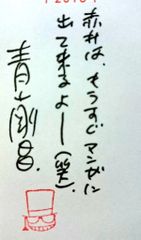 赤井は、もうすぐマンガに
出て来るよー(笑).
青山剛昌.